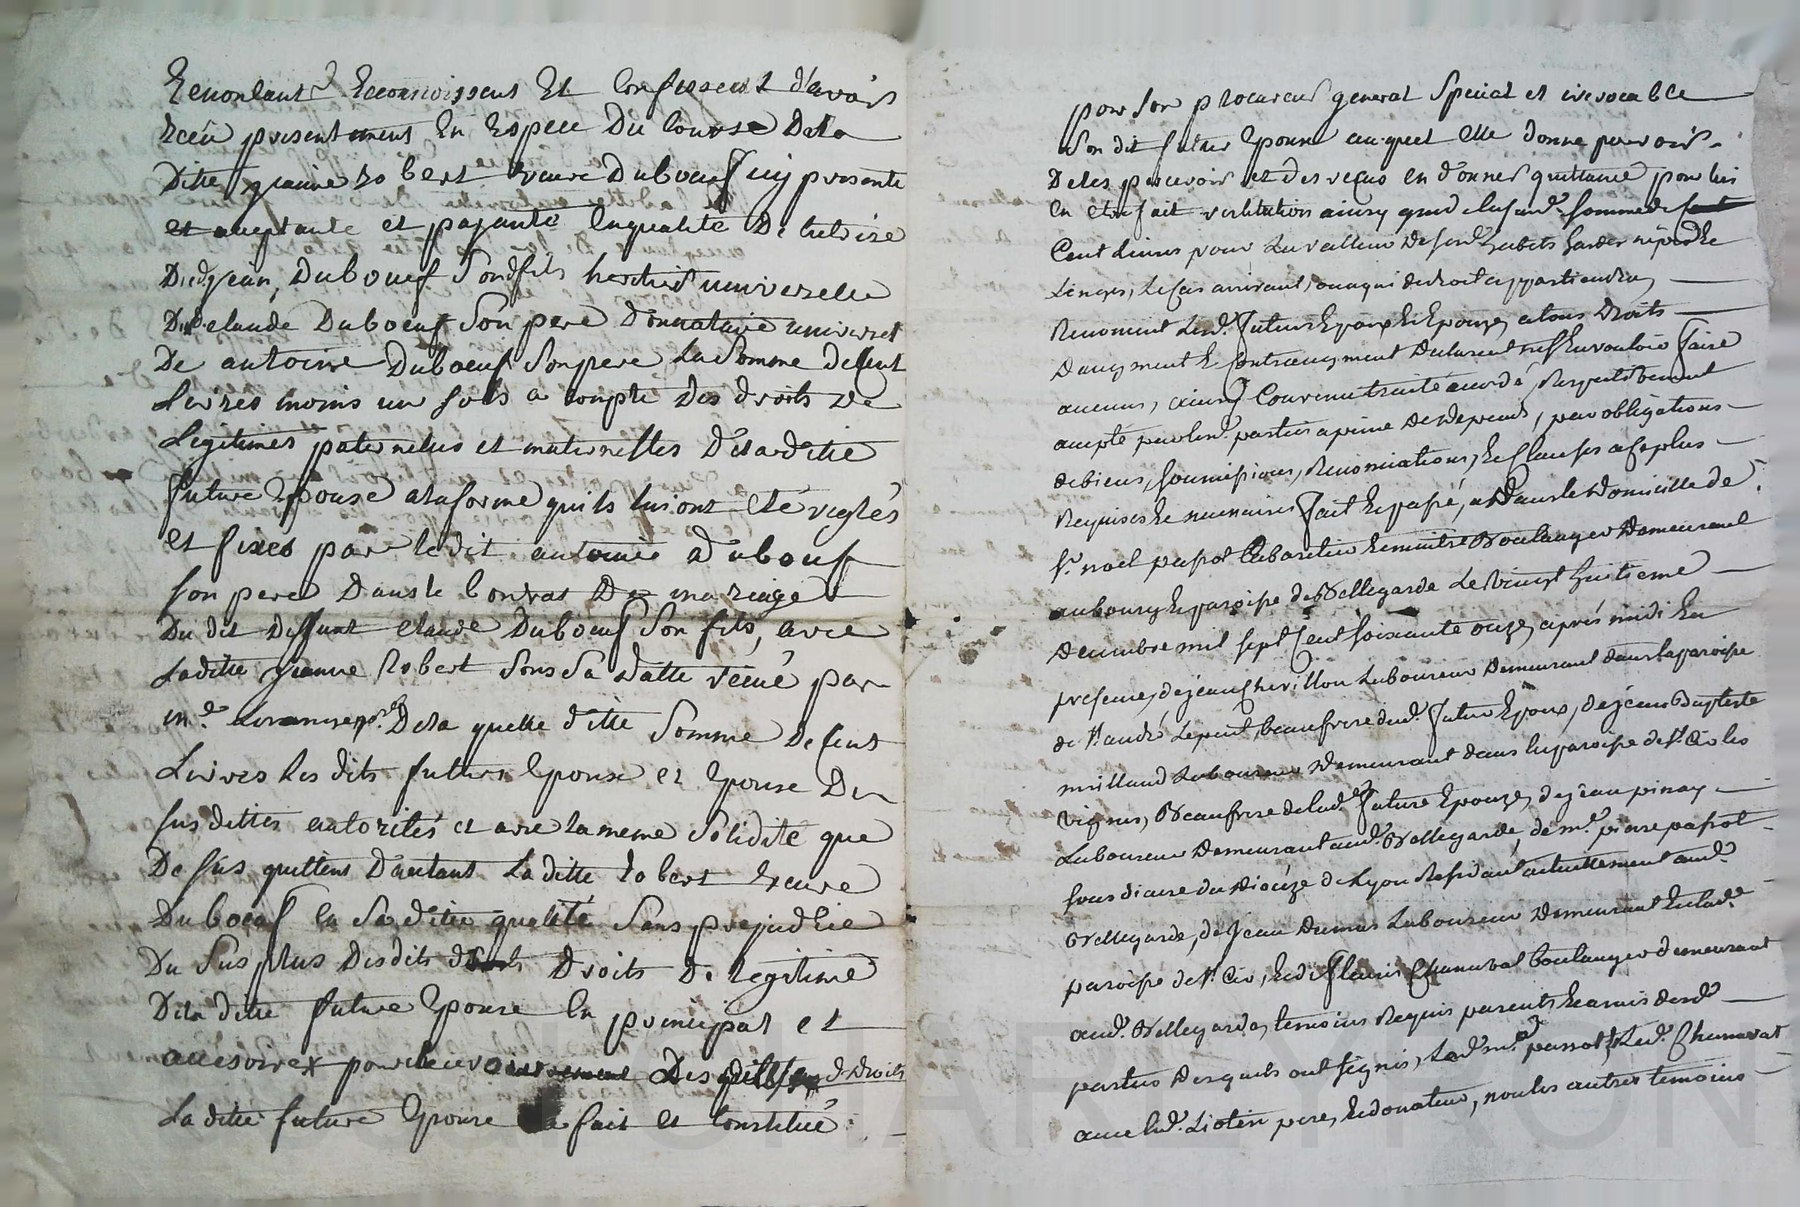 reconnoissent Et Confessent d'avoir
receu presentement En Espece Du Cours De la
Ditte jeanne robert veuve Duboeuf icy presente
et aceptante et payante En qualité De tutrise
Dud. jean Duboeuf Son fils heritier universelle
De Claude Duboeuf Son pere Donnataire universel
De antoine Duboeuf Son pere La Somme de Cent
Livres moins un sols a compte Des droits De
Legitimes paternelles et maternelles De la ditte
future Epouse a la forme qu'ils lui ont Eté reglés
et fixés par ledit antoine Dubouf
Son pere Dans le Contrat De mariage
Du dit deffunt Claude Duboeuf Son fils, avec
Laditte jeanne Robert Sous Sa Datte reçue par
m.e De la quelle ditte Somme De Cent
Livres les dits futurs Epoux et Epouse De
Sus dittes autorités et avec la meme Solidité que
De Sus quittent D'autant La ditte robert veuve
Duboeuf En Sa ditte qualité Sans prejudice
Du Sus plus Des dits droits De legitime
De la ditte future Epouse En principal et
accesoire pour recevoir Les droits
La ditte future Epouse a fait et Constitué
pour Son procureur general Special et irrevocable
Son dit futur Epoux auquel Elle donne pouvoir
De les percevoir et des reçus en donner quittance pour lui
En Etre fait restitution ainsy que de la susd. Somme de
Cent Livres pour La valleur De Sesd. habits hardes
Linges, Le Cas arrivant, ou a qui de droit appartiendra,
Renoncent Lesd. futurs Epoux Et Epouze, a tous Droits
D'augment Et Contreaugment Declarent n'En vouloir faire
aucuns, ainsy Convenu traité accordé, Respectivement
accepté par lesd. parties a peine De Depens, par obligations
de biens, soumissions, Renonciations, Et Clauses a ce plus
Requises Et necessaires fait Et passé, Dans le Domicille de
S.r noel papot Cabaretier Et maitre Boulanger Demeurant
au bourg Et paroisse de Bellegarde Le vingt huitieme
Decembre mil sept Cent soixante onze, aprés midi En
presence, de jean Chevillon Laboureur Demeurant dans la paroisse
de S.t andré Le puit, beaufrere dud. futur Epoux, de jean Baptiste
milland Laboureur Demeurant dans la paroisse de S.t Cir les
vignes, Beaufrere de lad. future Epouze, de jean pinay
Laboureur Demeurant aud. Bellegarde, de m.e pierre papot
sous diacre du Diocéze de Lyon Residant actuellement aud.
Bellegarde, de jean Dumas Laboureur Demeurant En lad.
paroisse de S.t Cir, Et de fleuris Chanavat boulanger demeurant
aud. Bellegarde, temoins Requis parents Et amis desd.
parties Desquels ont signés, Led. m.e papot Et Led. Chanavat
avec led. Liotier pere, Et donateur, non les autres temoins